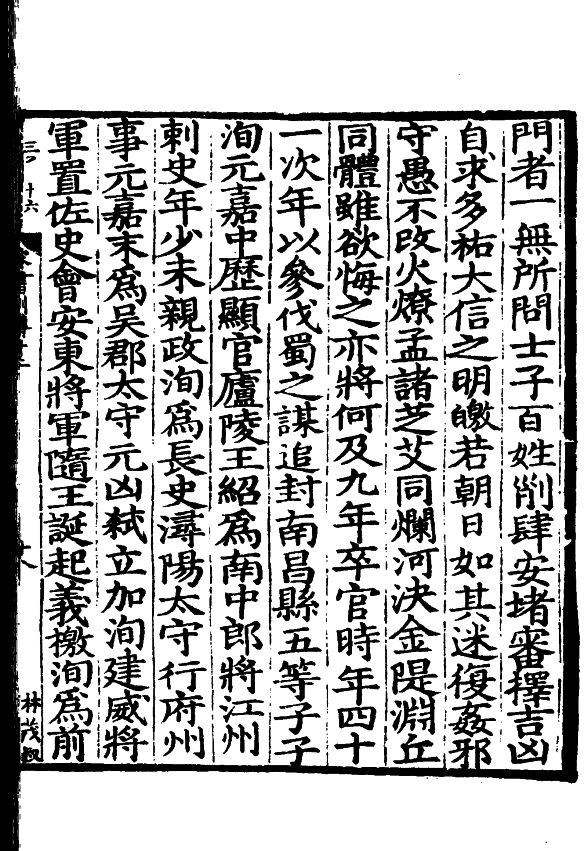 門者一無所問士子百姓削肆安堵審擇吉凶
自求多祐大信之明皦若朝日如其迷復姦邪
守愚不改火燎孟諸芝艾同爛河決金隄淵丘
同體雖欲悔之亦將何及九年卒官時年四十
一次年以參伐蜀之謀追封南昌縣五等子子
洵元嘉中歷顯官廬陵王紹為南中郎將江州
刺史年少未親政洵為長史潯陽太守行府州
事元嘉末為吳郡太守元凶弒立加洵建威將
軍置佐史會安東將軍隨王誕起義檄洵為前
十六
林茂叔